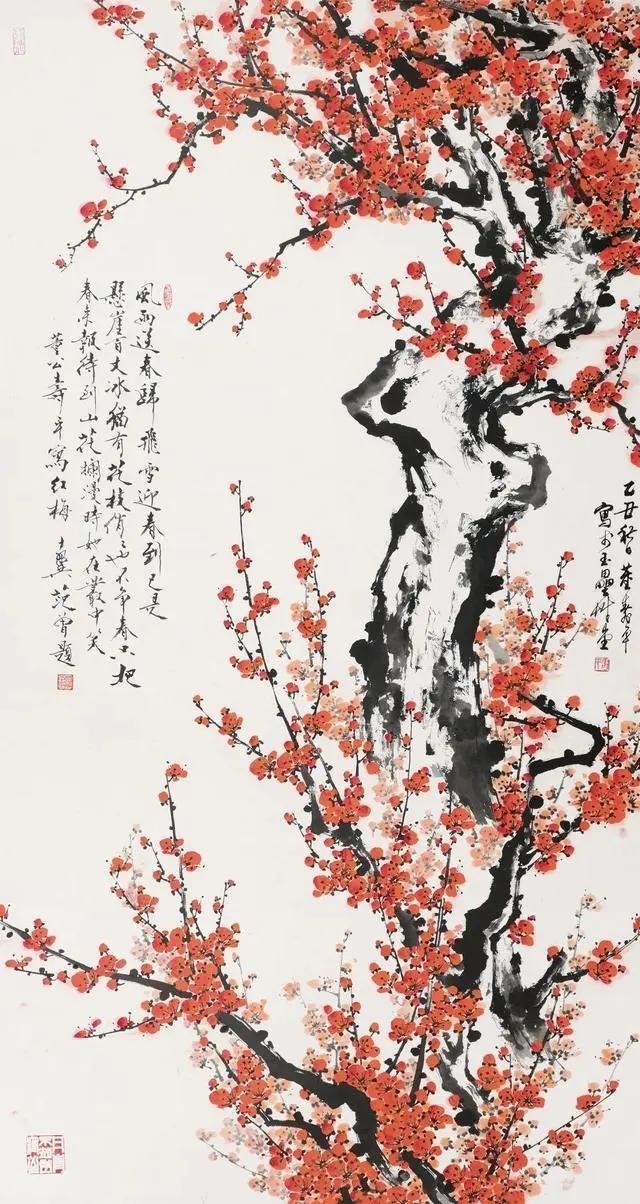 乙丑秋日董壽平
寫於玉艸堂
風雨送春歸飛雪迎春到已是
懸崖百丈冰猶有花枝俏〻也不爭春只把
春來報待到山花爛漫時她在叢中笑
董公壽平寫紅梅 十翼范曾題